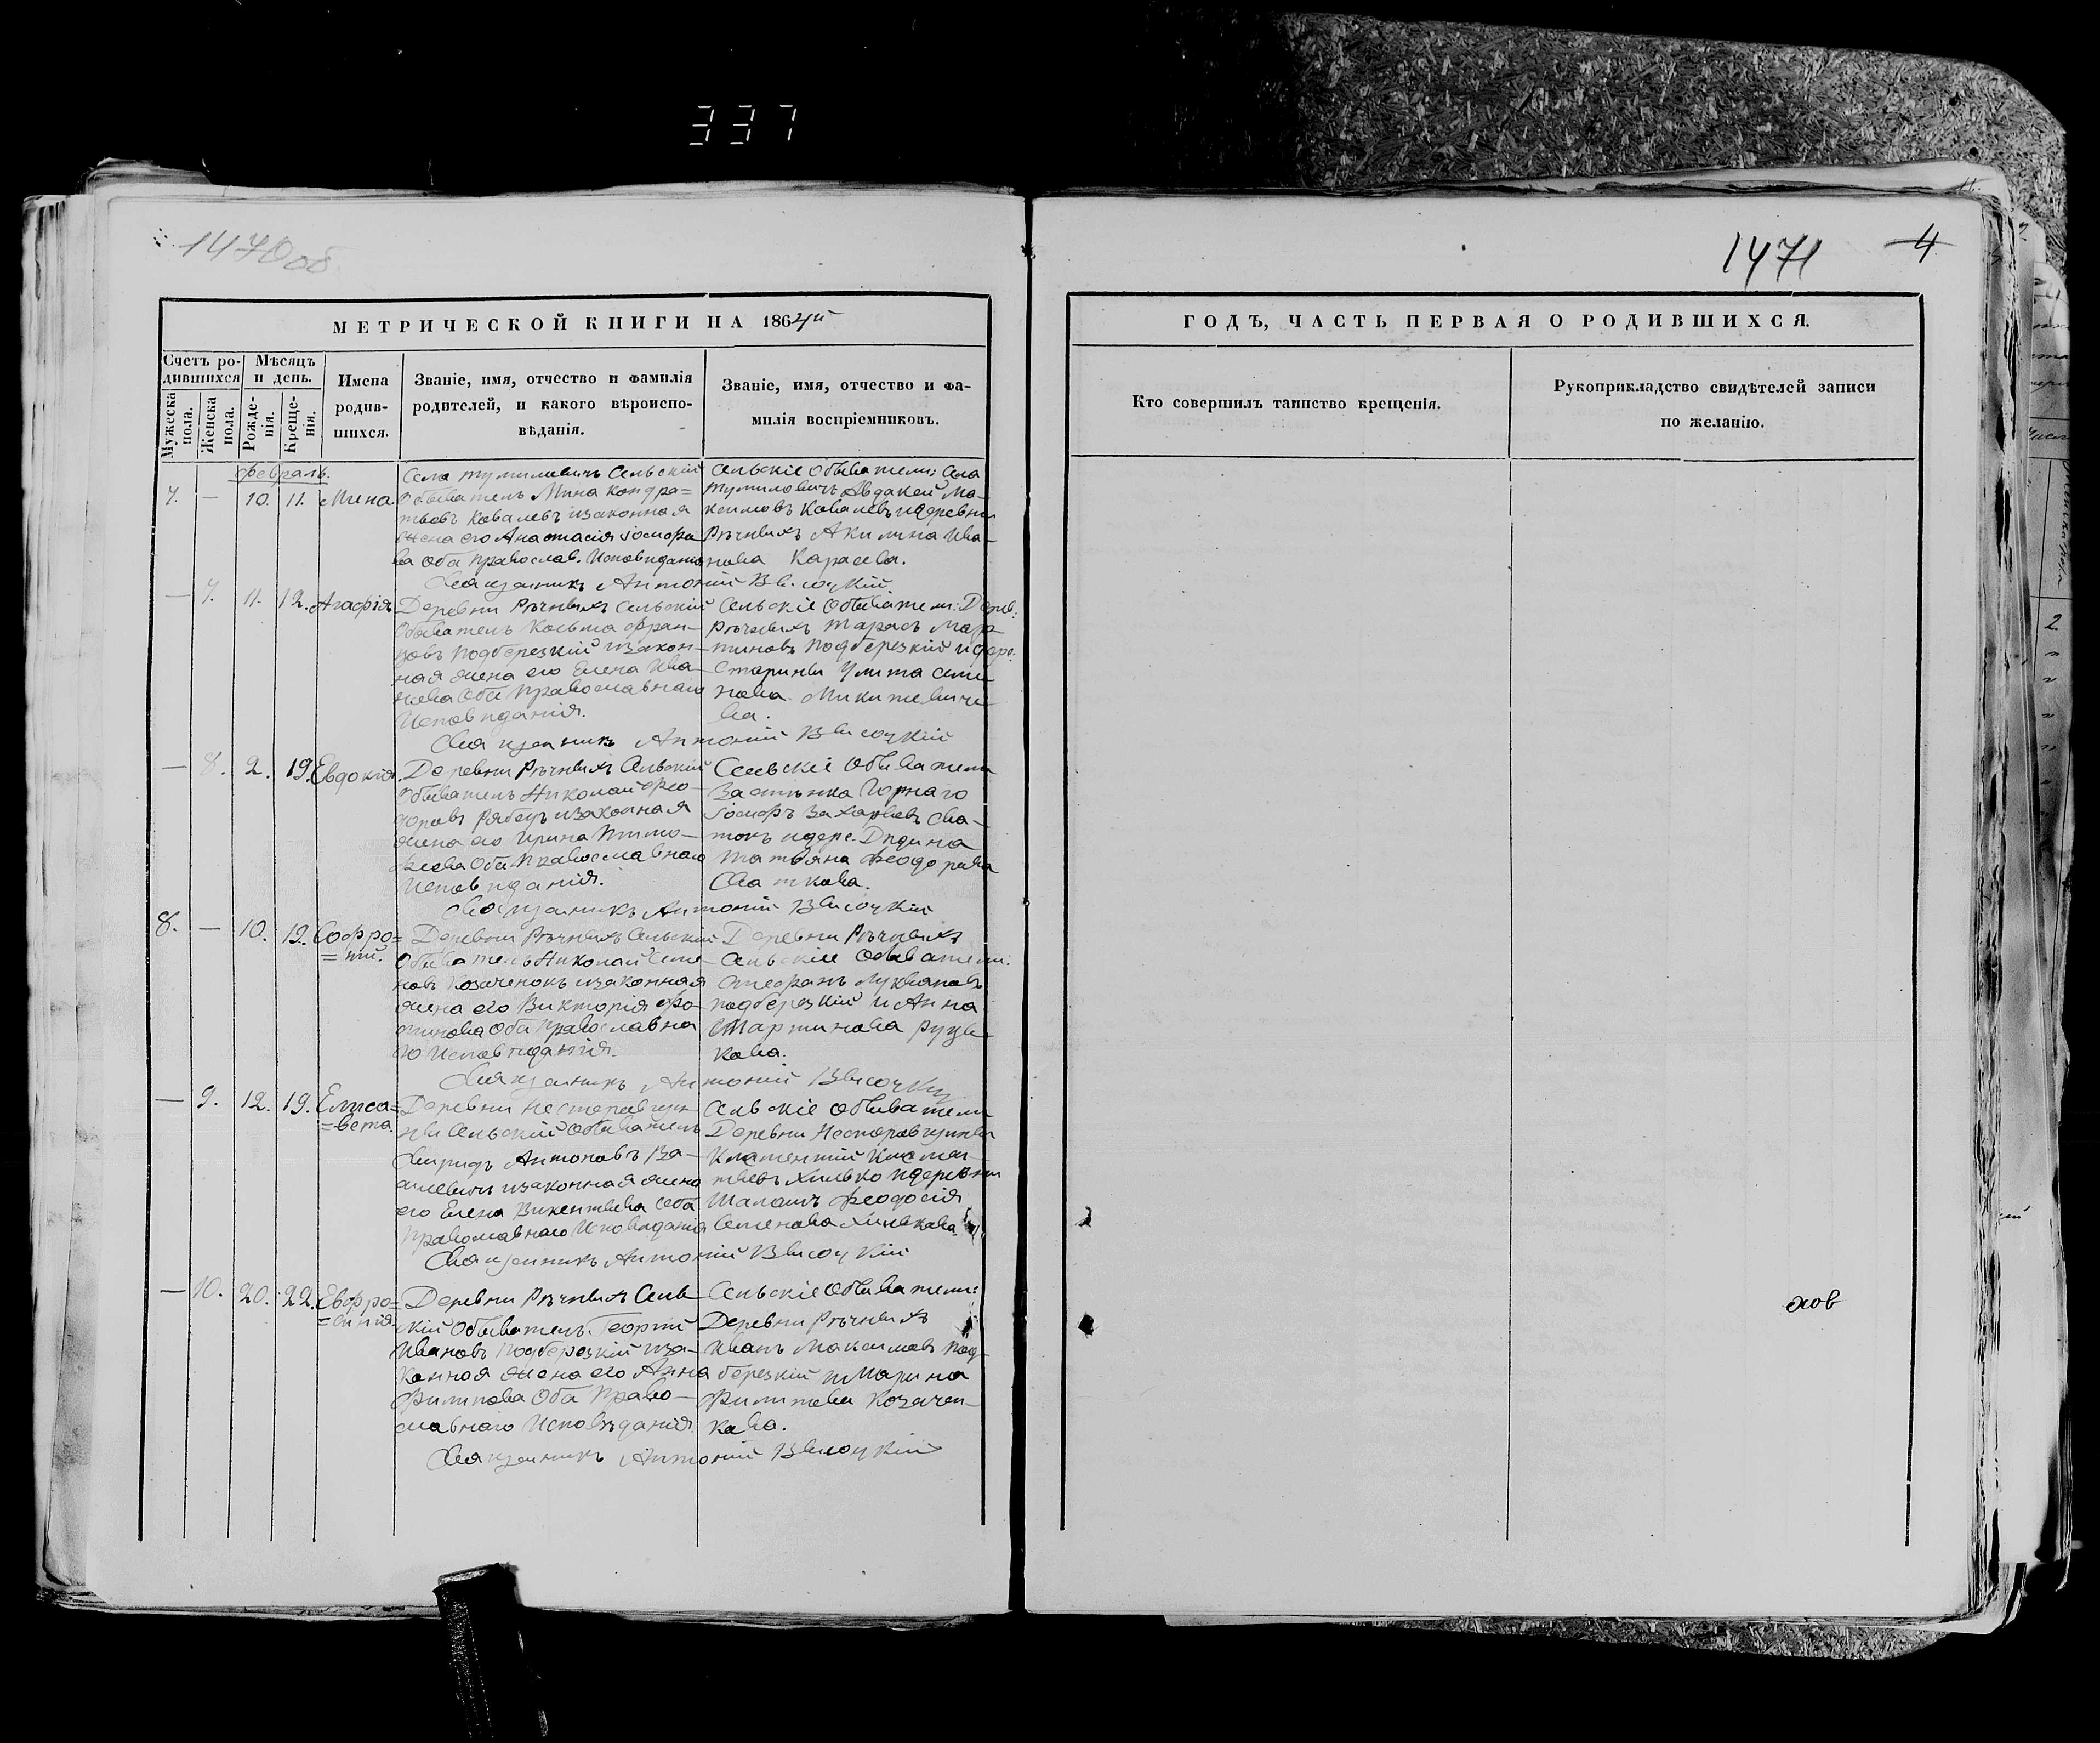 337
1470об
1471
4
МЕТРИЧЕСКОЙ КНИГИ НА 1864й
Счетъ ро-
дившихся
Мѣсяцъ
и день.
Мужеска
пола.
Женска
пола.
Рожде-
нія.
Креще-
нія.
Имена
родив-
шихся.
Званіе, имя, отчество и фамилія
родителей, и какого вѣроиспо-
вѣданія.
Званіе, имя, отчество и фа-
милія воспріемниковъ.
ГОДЪ, ЧАСТЬ ПЕРВАЯ О РОДИВШИХСЯ.
Кто совершилъ таинство крещенія.
Рукоприкладство свидѣтелей записи
по желанію.
февраль.
7. — 10. 11. Мина
Села Тумиловичъ Сельскій
Обыватель Мина Кондра=
тьовъ Ковалевъ изаконная
жена его Анастасія Іосифо
ва Оба православ. Исповиданія
Сельскіе Обыватели: Села
Тумиловичъ Авдакей Ма-
ксимовъ Ковалевъ идеревни
Рѣчныхъ Акилина Ива-
нова Карасева.
Священникъ Антоній Высоцкій
— 7. 11. 12. Агафія
Деревни Рѣчныхъ Сельскій
Обыватель Косьма Фран-
цовъ Подберезкій изакон-
ная жена его Елена Ива-
нова Оба Православнаго
Исповиданія.
Сельскіе Обыватели: Дерев:
Рѣчныхъ Тарасъ Мар-
тиновъ Подберезкій идере:
Старины Улита Семе
нова Микитевиче
ва.
Священникъ Антоній Высоцкій
— 8. 2. 19. Евдокія.
Деревни Рѣчныхъ Сельскій
Обыватель Николай Фео-
доровъ Рябец изаконная
жена его Ирина Тимо-
феева Оба Православнаго
Исповиданія.
Сельскіе Обыватели
Застѣнка Горнаго
Іосифъ Захарьевъ Сва-
токъ идере. Дидина
Татьяна Феодорова
Сваткова.
Священникъ Антоній Высоцкій
8. — 10. 19. Софро=
=ній.
Деревни Рѣчныхъ Сельскій
Обыватель Николай Семе-
новъ Козаченокъ изаконная
жена его Викторія Фо-
тинова Оба Православна
го Исповиданія.
Деревни Рѣчныхъ
Сельскіе Обыватели:
Стефанъ Лукьяновъ
Подберезкій и Анна
Мартинова Руцы
кова.
Священникъ Антоній Высоцкій
— 9. 12. 19. Елиса=
=вета.
Деревни Несторовщи
ны Сельскій Обыватель
Спиридъ Антоновъ Ва-
силевичъ изаконная жена
его Елена Викентьева Оба
Православнаго Исповиданія
Сельскіе Обыватели
Деревни Несторовщины
Климентій Климен
тьевъ Хилько идеревни
Шаломъ Феодосія
Семенова Хилькова
Священникъ Антоній Высоцкій
— 10. 20. 22. Евфро=
=синія.
Деревни Рѣчныхъ Сель-
скій Обыватель Георгій
Ивановъ Подберезкій иза-
конная жена его Анна
Филипова Оба Право-
славнаго Исповѣданія
Сельскіе Обыватели:
Деревни Рѣчныхъ
Иванъ Максимовъ Под-
березкій и Марина
Филипова Козачен-
кова.
Священникъ Антоній Высоцкій